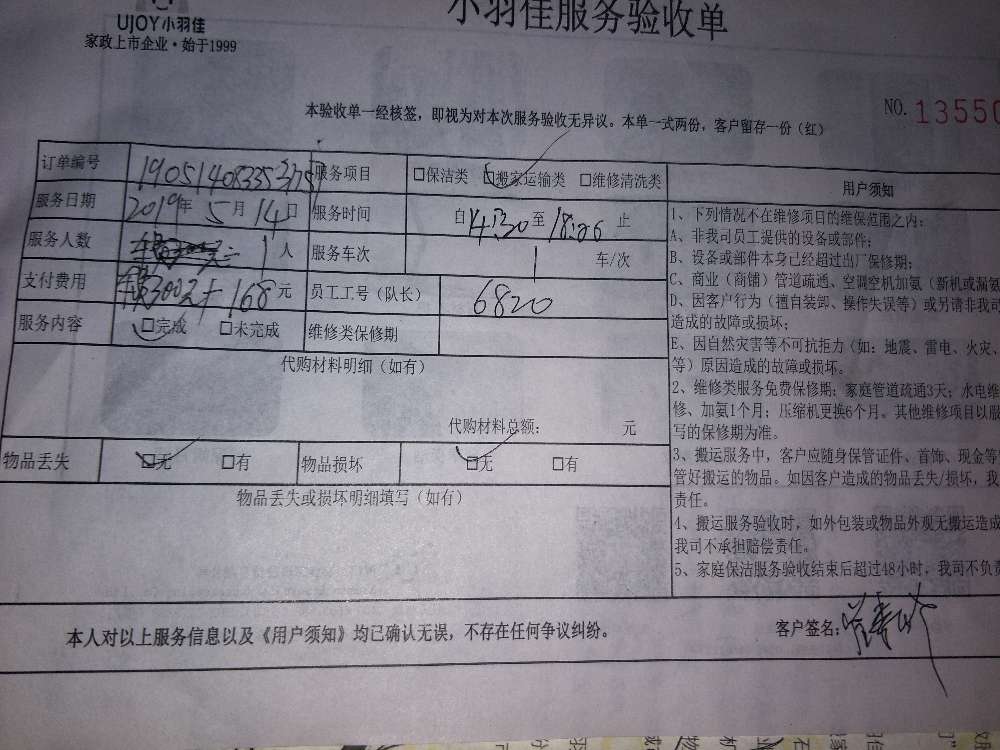 小羽佳服务验收单
UJOY小羽佳
家政上市企业·始于1999
NO. 13550
本验收单一经核签，即视为对本次服务验收无异议。本单一式两份，客户留存一份（红）
订单编号 服务项目 □保洁类 □搬家运输类 □维修清洗类
服务日期 2019年 5月 14日 服务时间 自14:30至18:06止
服务人数 1人 服务车次 1 车/次
支付费用 300元+168元 员工工号（队长） 6820
服务内容 □完成 □未完成 维修类保修期
代购材料明细（如有）
代购材料总额： 元
物品丢失 □无 □有 物品损坏 □无 □有
物品丢失或损坏明细填写（如有）
用户须知
1、下列情况不在维修项目的维保范围之内：
A、非我司员工提供的设备或部件；
B、设备或部件本身已经超过出厂保修期；
C、商业（商铺）管道疏通、空调空机加氨（新机或漏氨
D、因客户行为（擅自装卸、操作失误等）或另请非我司
造成的故障或损坏；
E、因自然灾害等不可抗拒力（如：地震、雷电、火灾、
等）原因造成的故障或损坏。
2、维修类服务免费保修期：家庭管道疏通3天；水电维
修、加氨1个月；压缩机更换6个月。其他维修项目以服
写的保修期为准。
3、搬运服务中，客户应随身保管证件、首饰、现金等
管好搬运的物品。如因客户造成的物品丢失/损坏，我
责任。
4、搬运服务验收时，如外包装或物品外观无搬运造成
我司不承担赔偿责任。
5、家庭保洁服务验收结束后超过48小时，我司不负责
本人对以上服务信息以及《用户须知》均已确认无误，不存在任何争议纠纷。
客户签名：